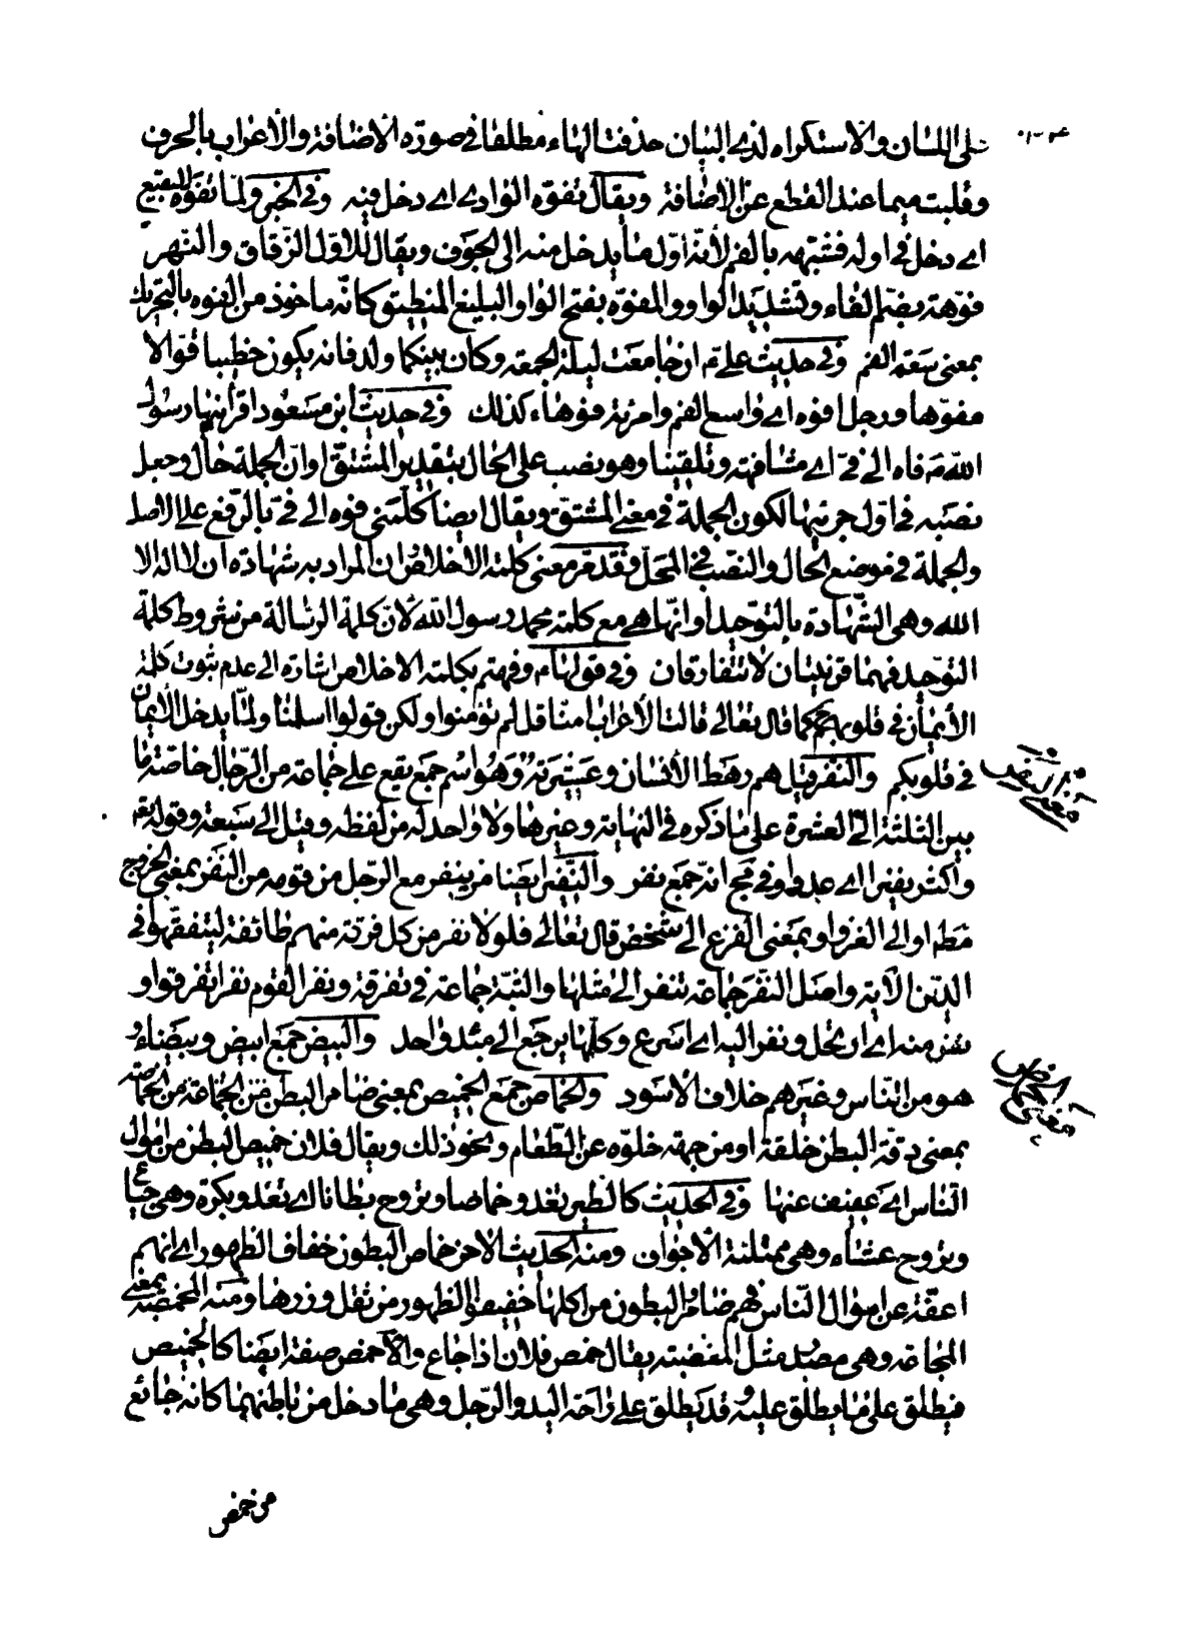 على اللسان والاستكراه لذى البيان حذفت الهاء مطلقا فى صورة الاضافة والاعراب بالحرف
وقلبت ميما عند القطع عن الاضافة ويقال تفوه الوادى اى دخل فيه وفى الخبر ولما تفوه البقيع
اى دخل فى اوله فشبهه بالفم لأنه اول ما يدخل منه الى الجوف ويقال للاول الزقاق والنهر
فوهة بضم الفاء وتشديد الواو والمفوه بفتح الواو البليغ المنطيق كانه ماخوذ من الفوه بالتحريك
بمعنى سعة الفم وفى حديث على ع ان جامعت ليلة الجمعة وكان بينكما ولد فانه يكون خطيبا قوالا
مفوها ورجل افوه اى واسع الفم وامرئة فوهاء كذلك وفى حديث ابن مسعود اقرأنيها رسول
الله ص فاه الى فىّ اى مشافهة وتلقينا وهو نصب على الحال بتقدير المشتق او ان الجملة حال وجعل
نصبه فى اول جزئيها لكون الجملة فى معنى المشتق ويقال ايضا كلمنى فوه الى فىّ بالرفع على الاصل
والجملة فى موضع الحال والنصب فى المحل وقد مر معنى كلمة الاخلاص وان المراد به شهادة ان لا اله الا
الله وهى الشهادة بالتوحيد او انها هى مع كلمة محمد رسول الله لان كلمة الرسالة من شروط كلمة
التوحيد فهما قرينتان لا تتفارقان وفى قولها ع وفهتم بكلمة الاخلاص اشارة الى عدم ثبوت كلمة
الأيمان فى قلوبهم كما قال تعالى قالت الأعراب امنا قل لم تؤمنوا ولكن قولوا اسلمنا ولما يدخل الأيمان
فى قلوبكم والنفر قيل هم رهط الأنسان وعشيرته وهو اسم جمع يقع على جماعة من الرجال خاصة ما
بين الثلثة الى العشرة على ما ذكره فى النهاية وغيرها ولا واحد له من لفظه وقيل الى سبعة وقوله تعـ
واكثر نفيرا اى عددا وفى مجمع انه جمع نفر والنفير ايضا من ينفر مع الرجل من قومه من النفر بمعنى الخروج
مطم او الى الغزو او بمعنى الفزع الى شخص قال تعالى فلولا نفر من كل فرقة منهم طائفة ليتفقهوا فى
الدين الاية واصل النفر جماعة تنفر الى مثلها والثبة جماعة فى تفرقة ونفر القوم نفرا تفرقوا و
نفر منه اى ارتحل ونفر اليه اى اسرع وكلها يرجع الى مبدء واحد والبيض جمع ابيض وبيضاء و
هو من الناس وغيرهم خلاف الاسود والخماص جمع الخميص بمعنى ضامر البطن من الجماعة من الخماصة
بمعنى دقة البطن خلقة او من جهة خلوه عن الطعام ونحو ذلك ويقال فلان خميص البطن من اموال
الناس اى عفيف عنها وفى الحديث كالطير تغدو خماصا وتروح بطانا اى تغدو بكرة وهى جياع
وتروح عشاء وهى ممتلئة الاجواف ومنه الحديث الاخر خماص البطون خفاف الظهور اى انهم
اعفة عن اموال الناس فهم ضامر البطون من اكلها خفيفوا الظهور من ثقل وزرها ومنه المخمصة بمعنى
المجاعة وهى مصدر مثل المغضبة يقال خمص فلان اذا جاع والاخمص صفة ايضا كالخميص
فيطلق على ما يطلق عليه وقد يطلق على راحة اليد والرجل وهى ما دخل من باطنهما كانه جائع
معنى النفر
معنى الخماص
من خمص